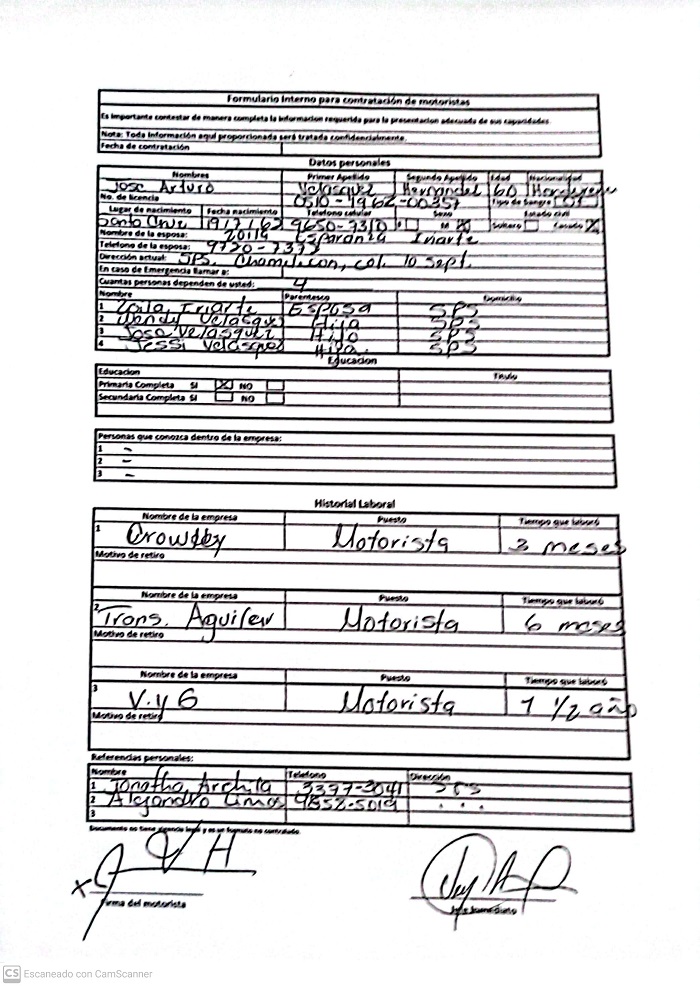 Formulario Interno para contratación de motoristas
Es importante contestar de manera completa la informacion requerida para la presentacion adecuada de sus capacidades.
Nota: Toda información aquí proporcionada será tratada confidencialmente.
Fecha de contratación
Datos personales
Nombres Primer Apellido Segundo Apellido Edad Nacionalidad
Jose Arturo Velasquez Hernandez 60 Hondureño
No. de licencia 0510-1962-00357 Tipo de Sangre
Lugar de nacimiento Fecha nacimiento Telefono celular Sexo Estado civil
Santa Cruz 9650-7310 M X Soltero Casado X
Nombre de la esposa: Esparanza Iriarte
Telefono de la esposa: 9720-7377
Dirección actual: SPS. Chamelicon, col. 10 sept.
En caso de Emergencia llamar a:
Cuantas personas dependen de usted: 4
Nombre Parentesco Domicilio
1 Iriarte Esposa SPS
2 Wendy Velasquez Hija SPS
3 Jose Velasquez Hijo SPS
4 Jessi Velasquez Hija SPS
Educacion
Educacion Titulo
Primaria Completa SI X NO
Secundaria Completa SI NO
Personas que conozca dentro de la empresa:
1 -
2 -
3 -
Historial Laboral
Nombre de la empresa Puesto Tiempo que laboró
1 Crowley Motorista 3 meses
Motivo de retiro
Nombre de la empresa Puesto Tiempo que laboró
2 Trans. Motorista 6 meses
Motivo de retiro
Nombre de la empresa Puesto Tiempo que laboró
3 V. y G Motorista 1 1/2 año
Motivo de retiro
Referencias personales:
Nombre Telefono Dirección
1 Archila 3377-3041 SPS
2 Alejandro 9852-5019 . . .
3
Documento no tiene vigencia legal y es un formato no controlado.
X J V H
Firma del motorista
CS Escaneado con CamScanner